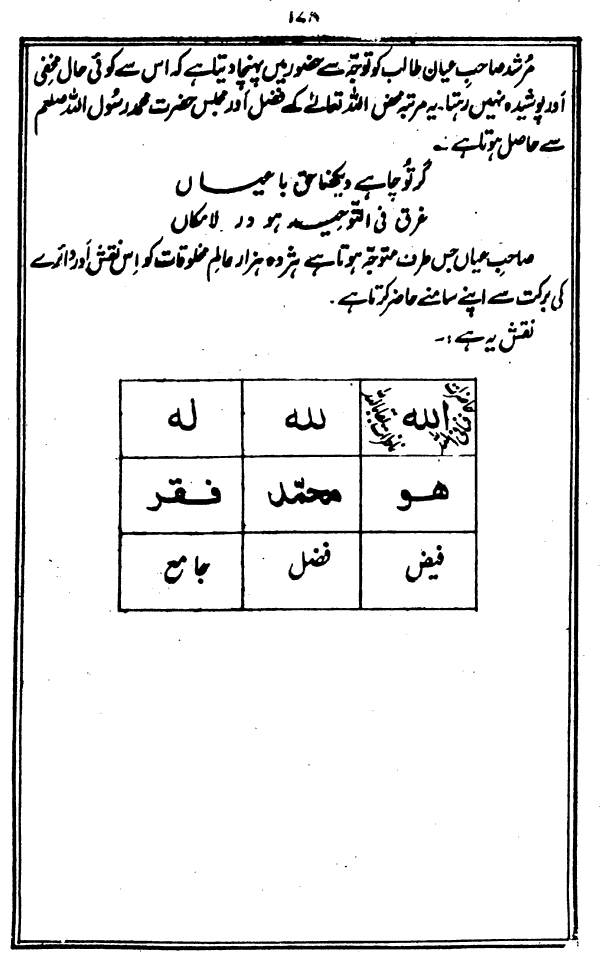 ۱۷۸
مُرشد صاحبِ عیان طالب کو توجّہ سے حضور میں پہنچا دیتا ہے کہ اس سے کوئی حال مخفی
اَور پوشیدہ نہیں رہتا۔ یہ مرتبہ محض اللہ تعالےٰ کے فضل اَور مجلس حضرت محمد رسُول اللہ صلعم
سے حاصل ہوتا ہے:۔
گر تُو چاہے دیکھنا حق با عیاں
غرق فی التوحید ہو در لامکاں
صاحبِ عیاں جس طرف متوجّہ ہوتا ہے ہژدہ ہزار عالمِ مخلوقات کو اِس نقش اَور دائرے
کی برکت سے اپنے سامنے حاضر کرتا ہے۔
نقش یہ ہے:۔
الله لله له
هو محمّد فقر
فیض فضل جامع